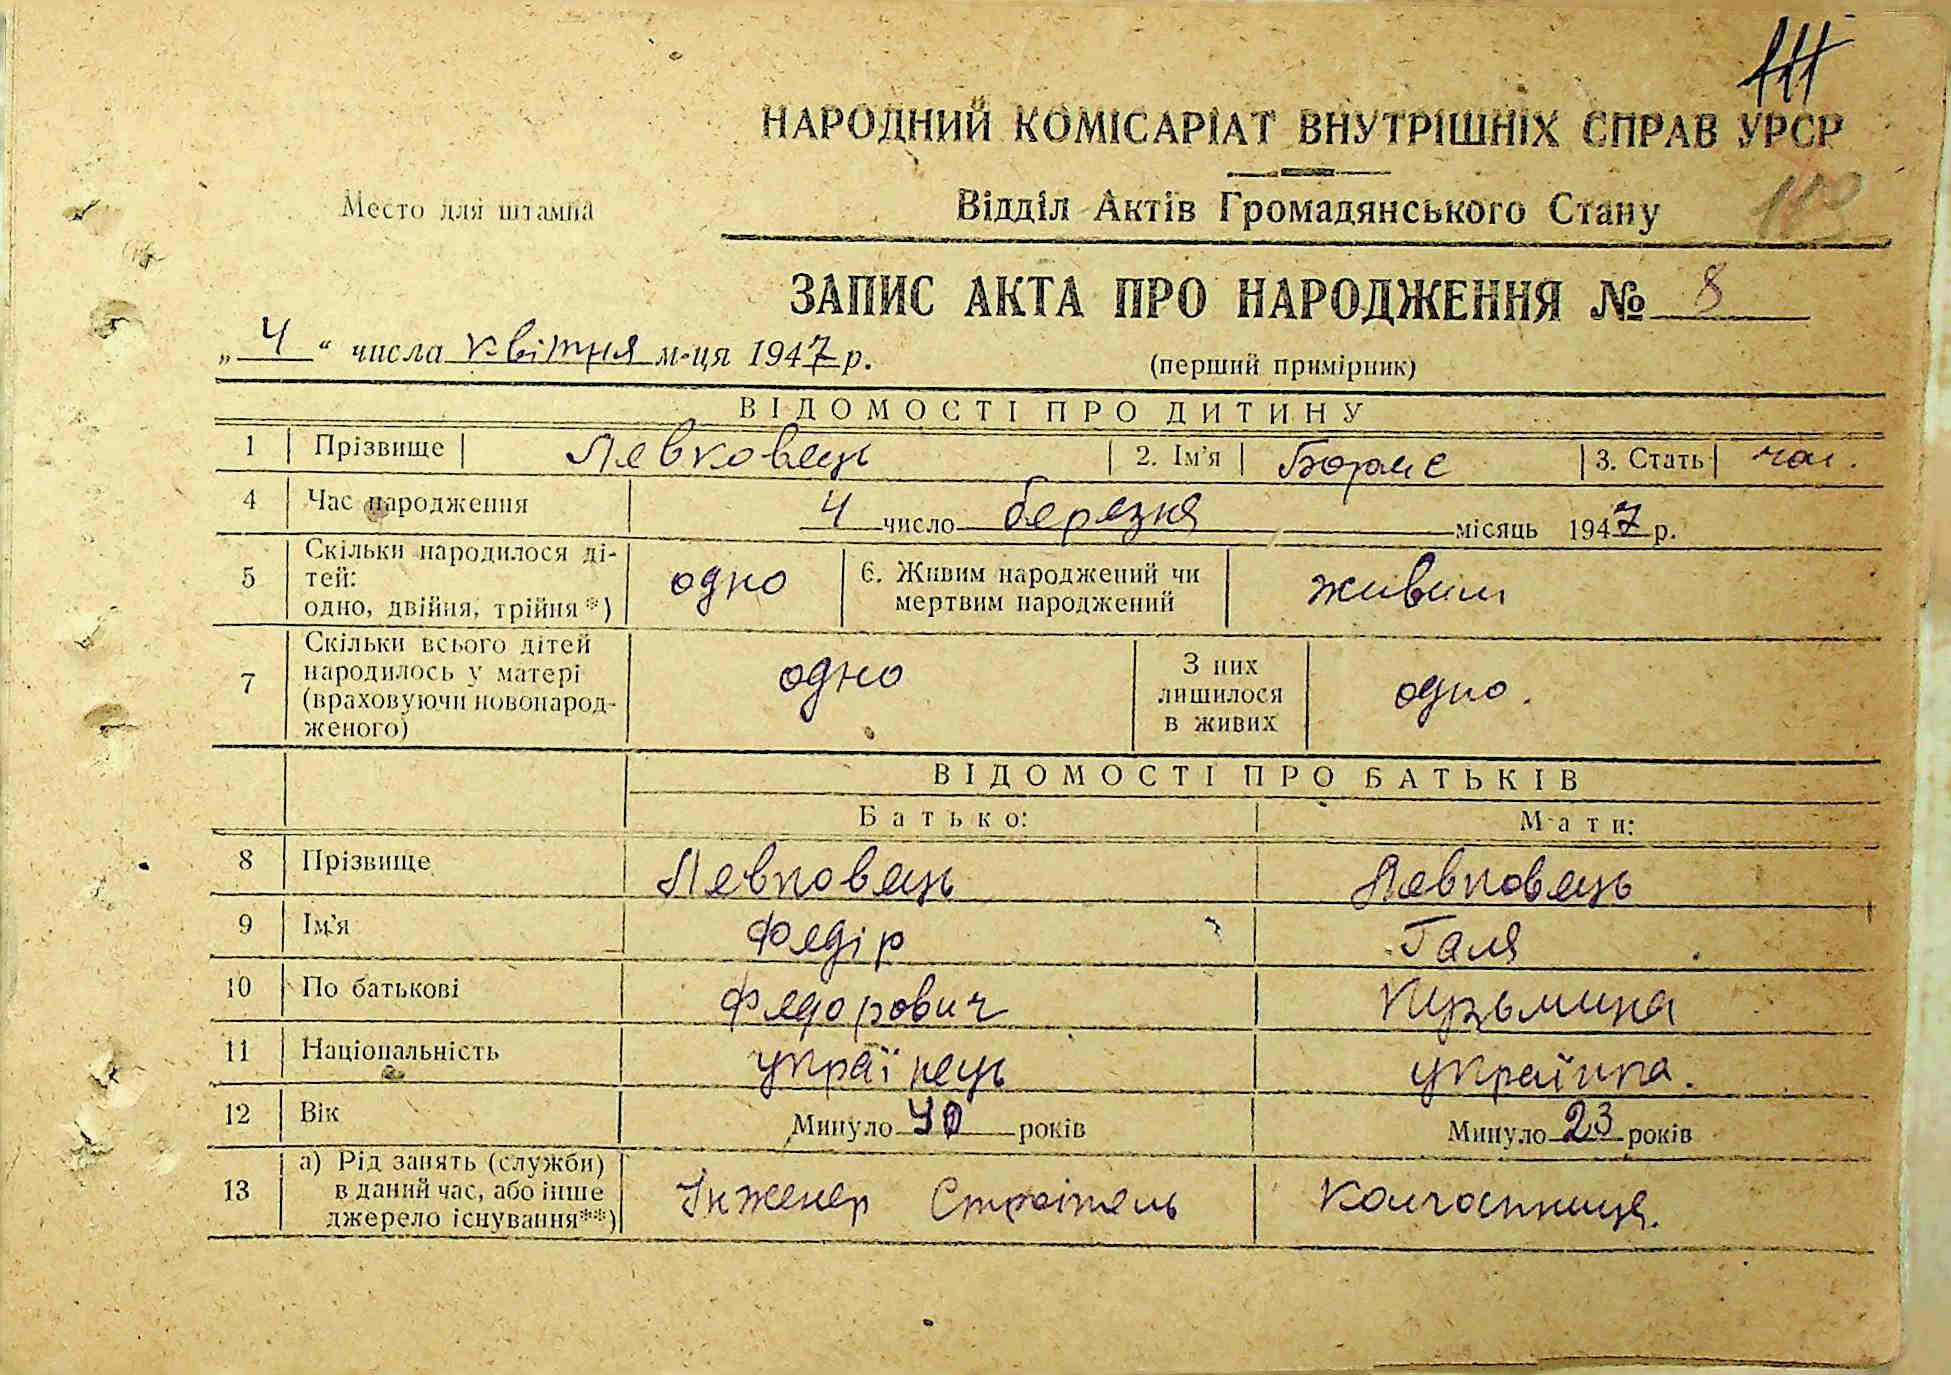 111
НАРОДНИЙ КОМІСАРІАТ ВНУТРІШНІХ СПРАВ УРСР
Место для штампа
Відділ Актів Громадянського Стану
ЗАПИС АКТА ПРО НАРОДЖЕННЯ № 8
„ 4 “ числа квітня м-ця 1947 р.
(перший примірник)
ВІДОМОСТІ ПРО ДИТИНУ
1 Прізвище Левковець 2. Ім'я Борис 3. Стать чол.
4 Час народження 4 число березня місяць 1947 р.
5 Скільки народилося ді-
тей:
одно, двійня, трійня*) одно 6. Живим народжений чи
мертвим народжений живим
7 Скільки всього дітей
народилось у матері
(враховуючи новонарод-
женого) одно З них
лишилося
в живих одно.
ВІДОМОСТІ ПРО БАТЬКІВ
Батько: Мати:
8 Прізвище Левковець Левковець
9 Ім'я Федір Галя
10 По батькові Федорович Кузьмина
11 Національність українець українка.
12 Вік Минуло 40 років Минуло 23 років
13 а) Рід занять (службы)
в даний час, або інше
джерело існування**) Інженер Строітель Колгоспниця.